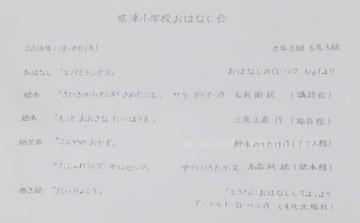 草津小学校おはなし会
2018年11月19日(月) 5年3組 6年3組
おはなし 「エパミナンダス」 おはなしのローソク No1より
絵本 「さびきの小オニがきめたこと」 サラ・ダイアー作 毛利衛訳 (講談社)
絵本 「もっと おおきな たいほうを」 二見正直作 (福音館)
紙芝居 「こんやの おかず」 鈴木のりたけ作 (アリス館)
「だじゃれクイズ・オリンピック」 中川ひろたか文 高畠純絵 (絵本館)
巻き絵 「だいりょこう」 「とうさん おはなしして」より
アーノルド・ローベル作 (文化出版社)